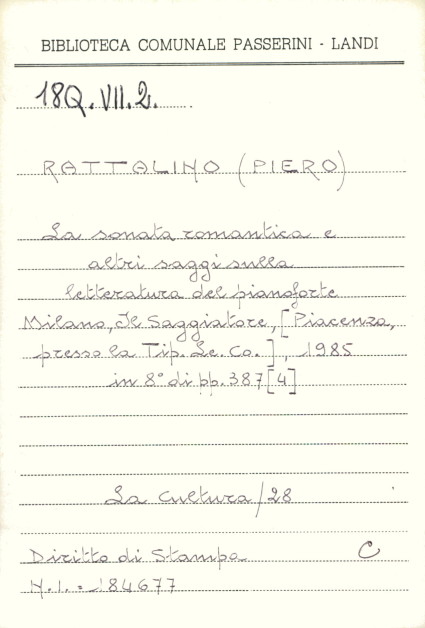 BIBLIOTECA COMUNALE PASSERINI - LANDI
18Q.VII.2.
RATTALINO (PIERO)
La sonata romantica e
altri saggi sulla
letteratura del pianoforte
Milano, Il Saggiatore, [Piacenza,
presso la Tip. Le. Co.], 1985
in 8° di pp. 387[4]
La cultura/28
Diritto di Stampa C
N.I. = 184677